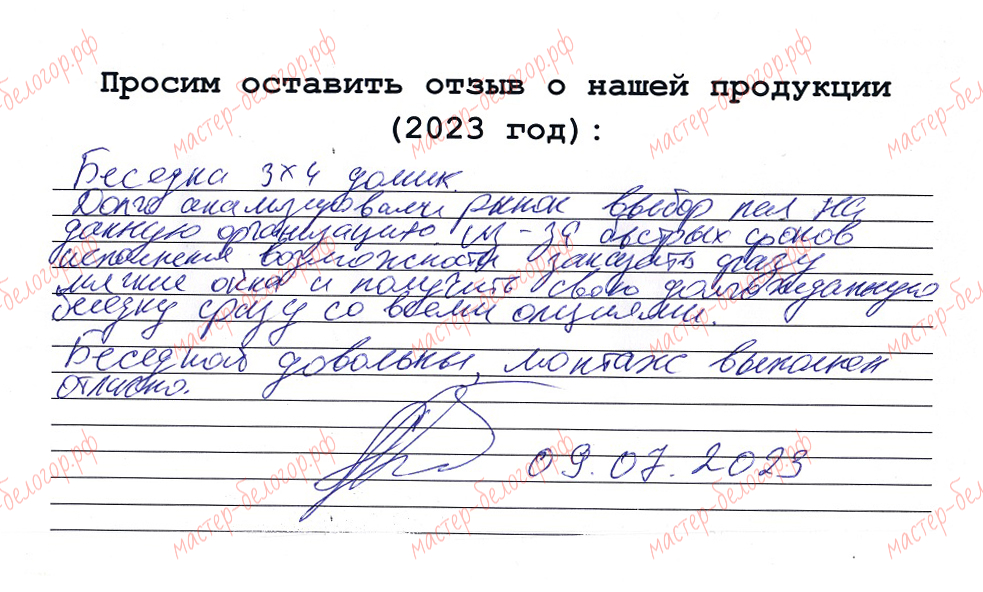 Просим оставить отзыв о нашей продукции
(2023 год):
Беседка 3х4 домик.
Долго анализировали рынок выбор пал на
данную организацию из-за быстрых сроков
исполнения возможности заказать сразу
мягкие окна и получить свою долгожданную
беседку сразу со всеми опциями.
Беседкой довольны, монтаж выполнен
отлично.
09.07.2023
мастер-белогор.рф
мастер-белогор.рф
мастер-белогор.рф
мастер-белогор.рф
мастер-белогор.рф
мастер-белогор.рф